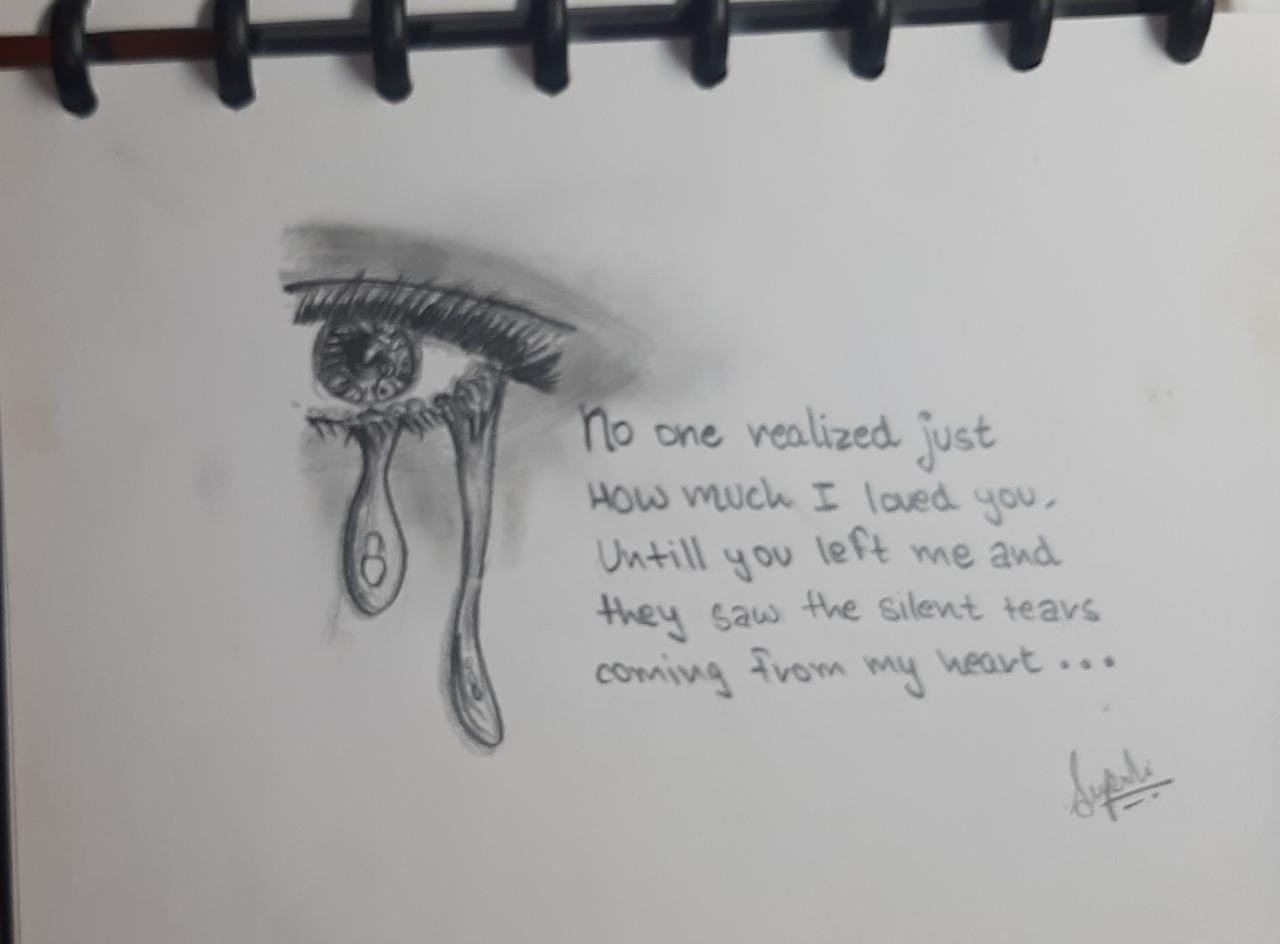 No one realized just
How much I loved you.
Untill you left me and
they saw the silent tears
coming from my heart ...